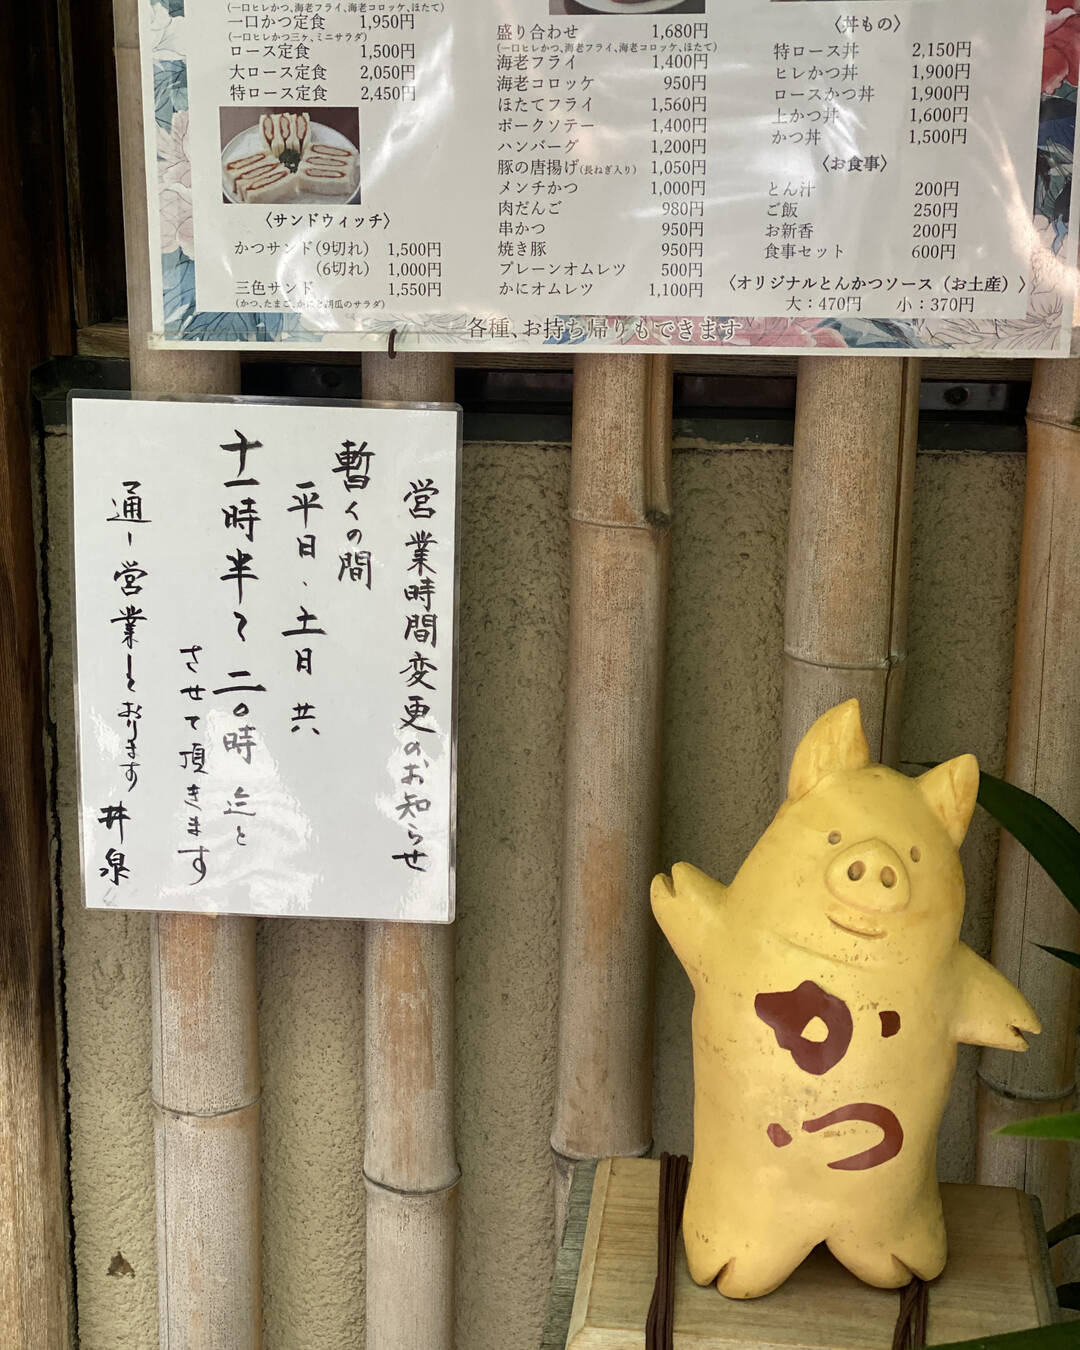 (一口ヒレかつ、海老フライ、海老コロッケ、ほたて)
一口かつ定食 1,950円
(一口ヒレかつ三ヶ、ミニサラダ)
ロース定食 1,500円
大ロース定食 2,050円
特ロース定食 2,450円
〈サンドウィッチ〉
かつサンド(9切れ) 1,500円
(6切れ) 1,000円
三色サンド 1,550円
(かつ、たまご、かにと胡瓜のサラダ)
盛り合わせ 1,680円
(一口ヒレかつ、海老フライ、海老コロッケ、ほたて)
海老フライ 1,400円
海老コロッケ 950円
ほたてフライ 1,560円
ポークソテー 1,400円
ハンバーグ 1,200円
豚の唐揚げ(長ねぎ入り) 1,050円
メンチかつ 1,000円
肉だんご 980円
串かつ 950円
焼き豚 950円
プレーンオムレツ 500円
かにオムレツ 1,100円
〈丼もの〉
特ロース丼 2,150円
ヒレかつ丼 1,900円
ロースかつ丼 1,900円
上かつ丼 1,600円
かつ丼 1,500円
〈お食事〉
とん汁 200円
ご飯 250円
お新香 200円
食事セット 600円
〈オリジナルとんかつソース(お土産)〉
大：470円 小：370円
各種、お持ち帰りもできます
営業時間変更のお知らせ
暫くの間
平日、土日共
十一時半〜二〇時迄と
させて頂きます
通し営業しております 井泉
かつ